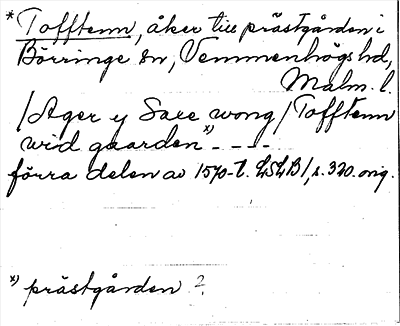 * Tofftenn, åker till prästgården i
Börringe sn, Vemmenhögs hd,
Malm. l.
/Ager y Saxe wong/Tofftenn
wid gaarden x) - - - -
förra delen av 1570-t. LSLB/, s. 320. orig.
x) prästgården ?